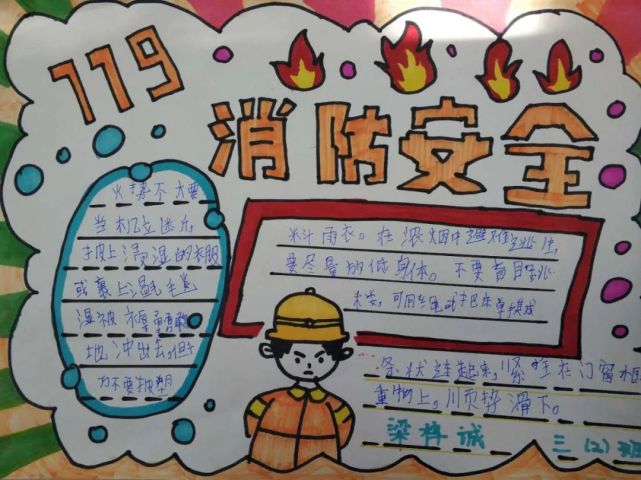 119
消防安全
火势不大要
当机立断
披上浸湿的衣服
或裹上湿毛毯
湿被褥勇敢
地冲出去,但千
万不要披塑
料雨衣。在浓烟中避难逃生,
要尽量放低身体。不要盲目跳
条状连起来,紧拴在门窗框
重物上。顺势滑下。
三(2)班